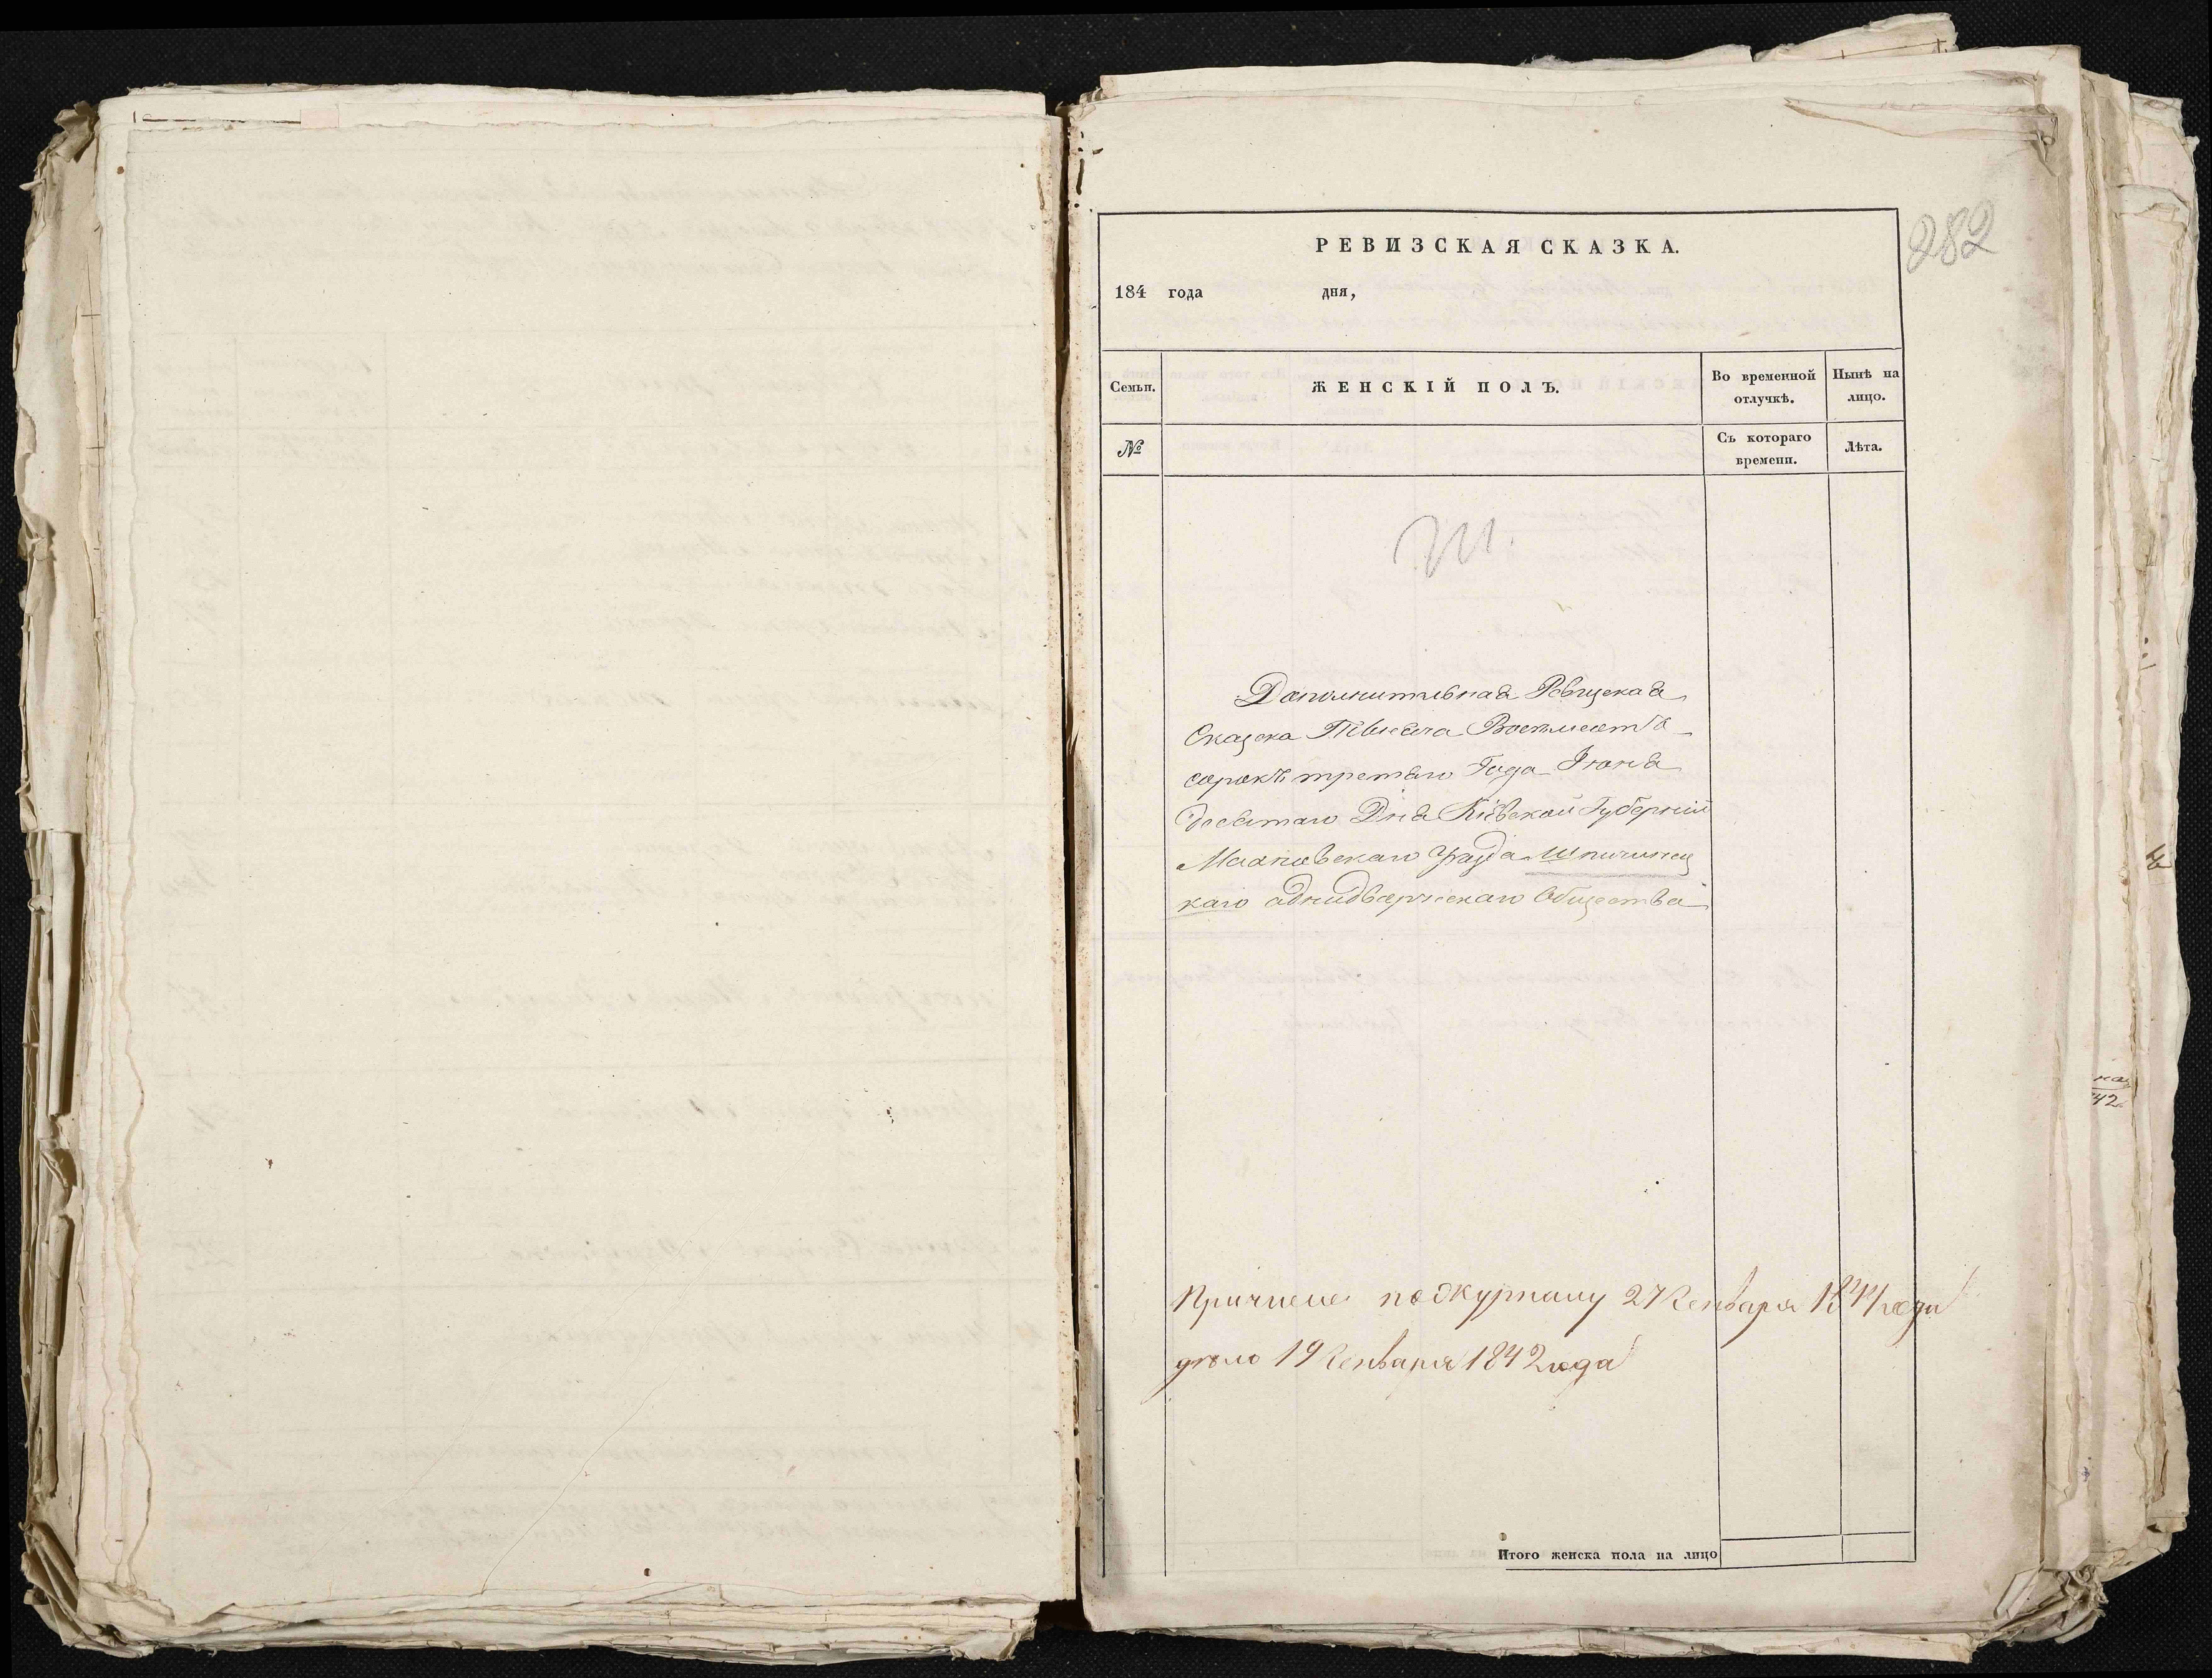 282
РЕВИЗСКАЯ СКАЗКА.
184 года дня,
Семьи. ЖЕНСКІЙ ПОЛЪ. Во временной отлучкѣ. Нынѣ на лицо.
№ Съ котораго времени. Лѣта.
Ш.
Дополнительная Ревизская
Сказка Тысяча Восемьсотъ
сорокъ третяго Года Іюня
десятаго Дня Кіевской Губерніи
Махновскаго Уѣзда Шпичинец
каго аднидворческаго Общества
по Журналу 27 Генваря 1844 года
дѣло 19 Генваря 1842 года
Итого женска пола на лицо